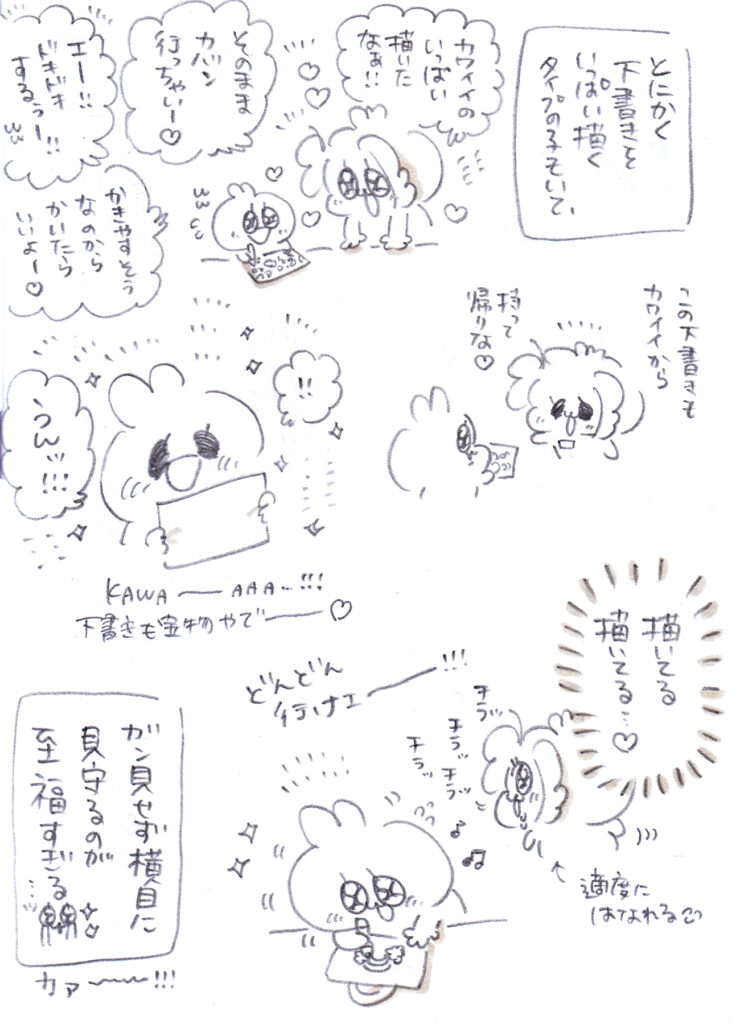 とにかく
下書きを
いっぱい描く
タイプの子もいて、
カワイイの
いっぱい
描いた
なぁ!!
そのまま
カバン
行っちゃいー♡
エー!!
ドキドキ
するぅー!!
かきやすそう
なのから
かいたら
いいよー♡
この下書きも
カワイイから
持って
帰りな♡
!!
うんッ!!!
KAWA―AAA…!!!
下書きも宝物やで―♡
描いてる
描いてる…♡
どんどん
行けェ―!!!
チラッ
チラッ
チラッ
チラッ
適度に
はなれる
ガン見せず横目に
見守るのが
至福すぎる…ッ
カァ〜〜!!!